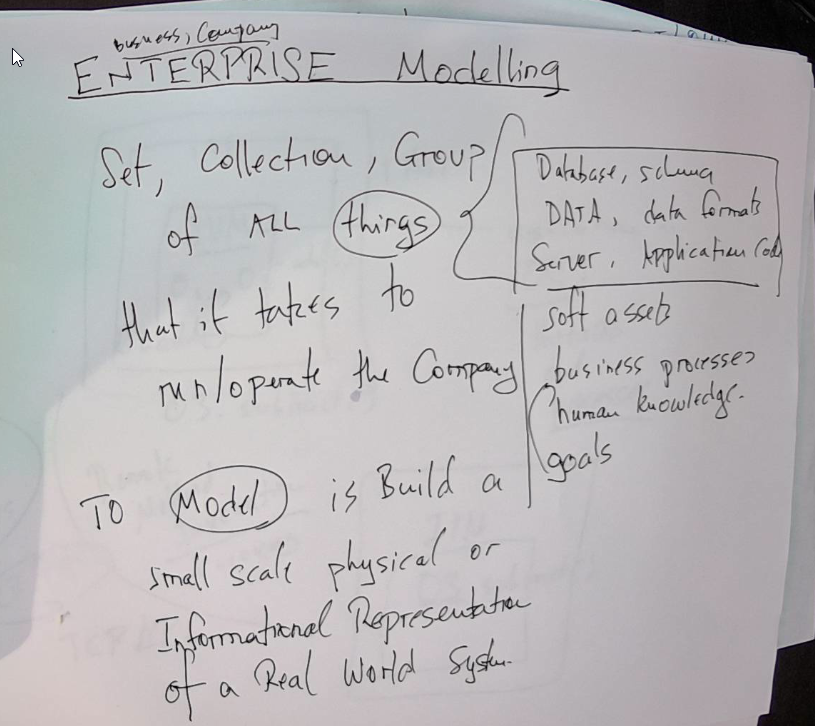 business, Company
ENTERPRISE Modelling
Set, Collection, Group
of ALL things
that it takes to
run/operate the Company
Database, schema
DATA, data formats
Server, Application Code
soft assets
business processes
human knowledge.
goals
TO Model is Build a
small scale physical or
Informational Representation
of a Real World System